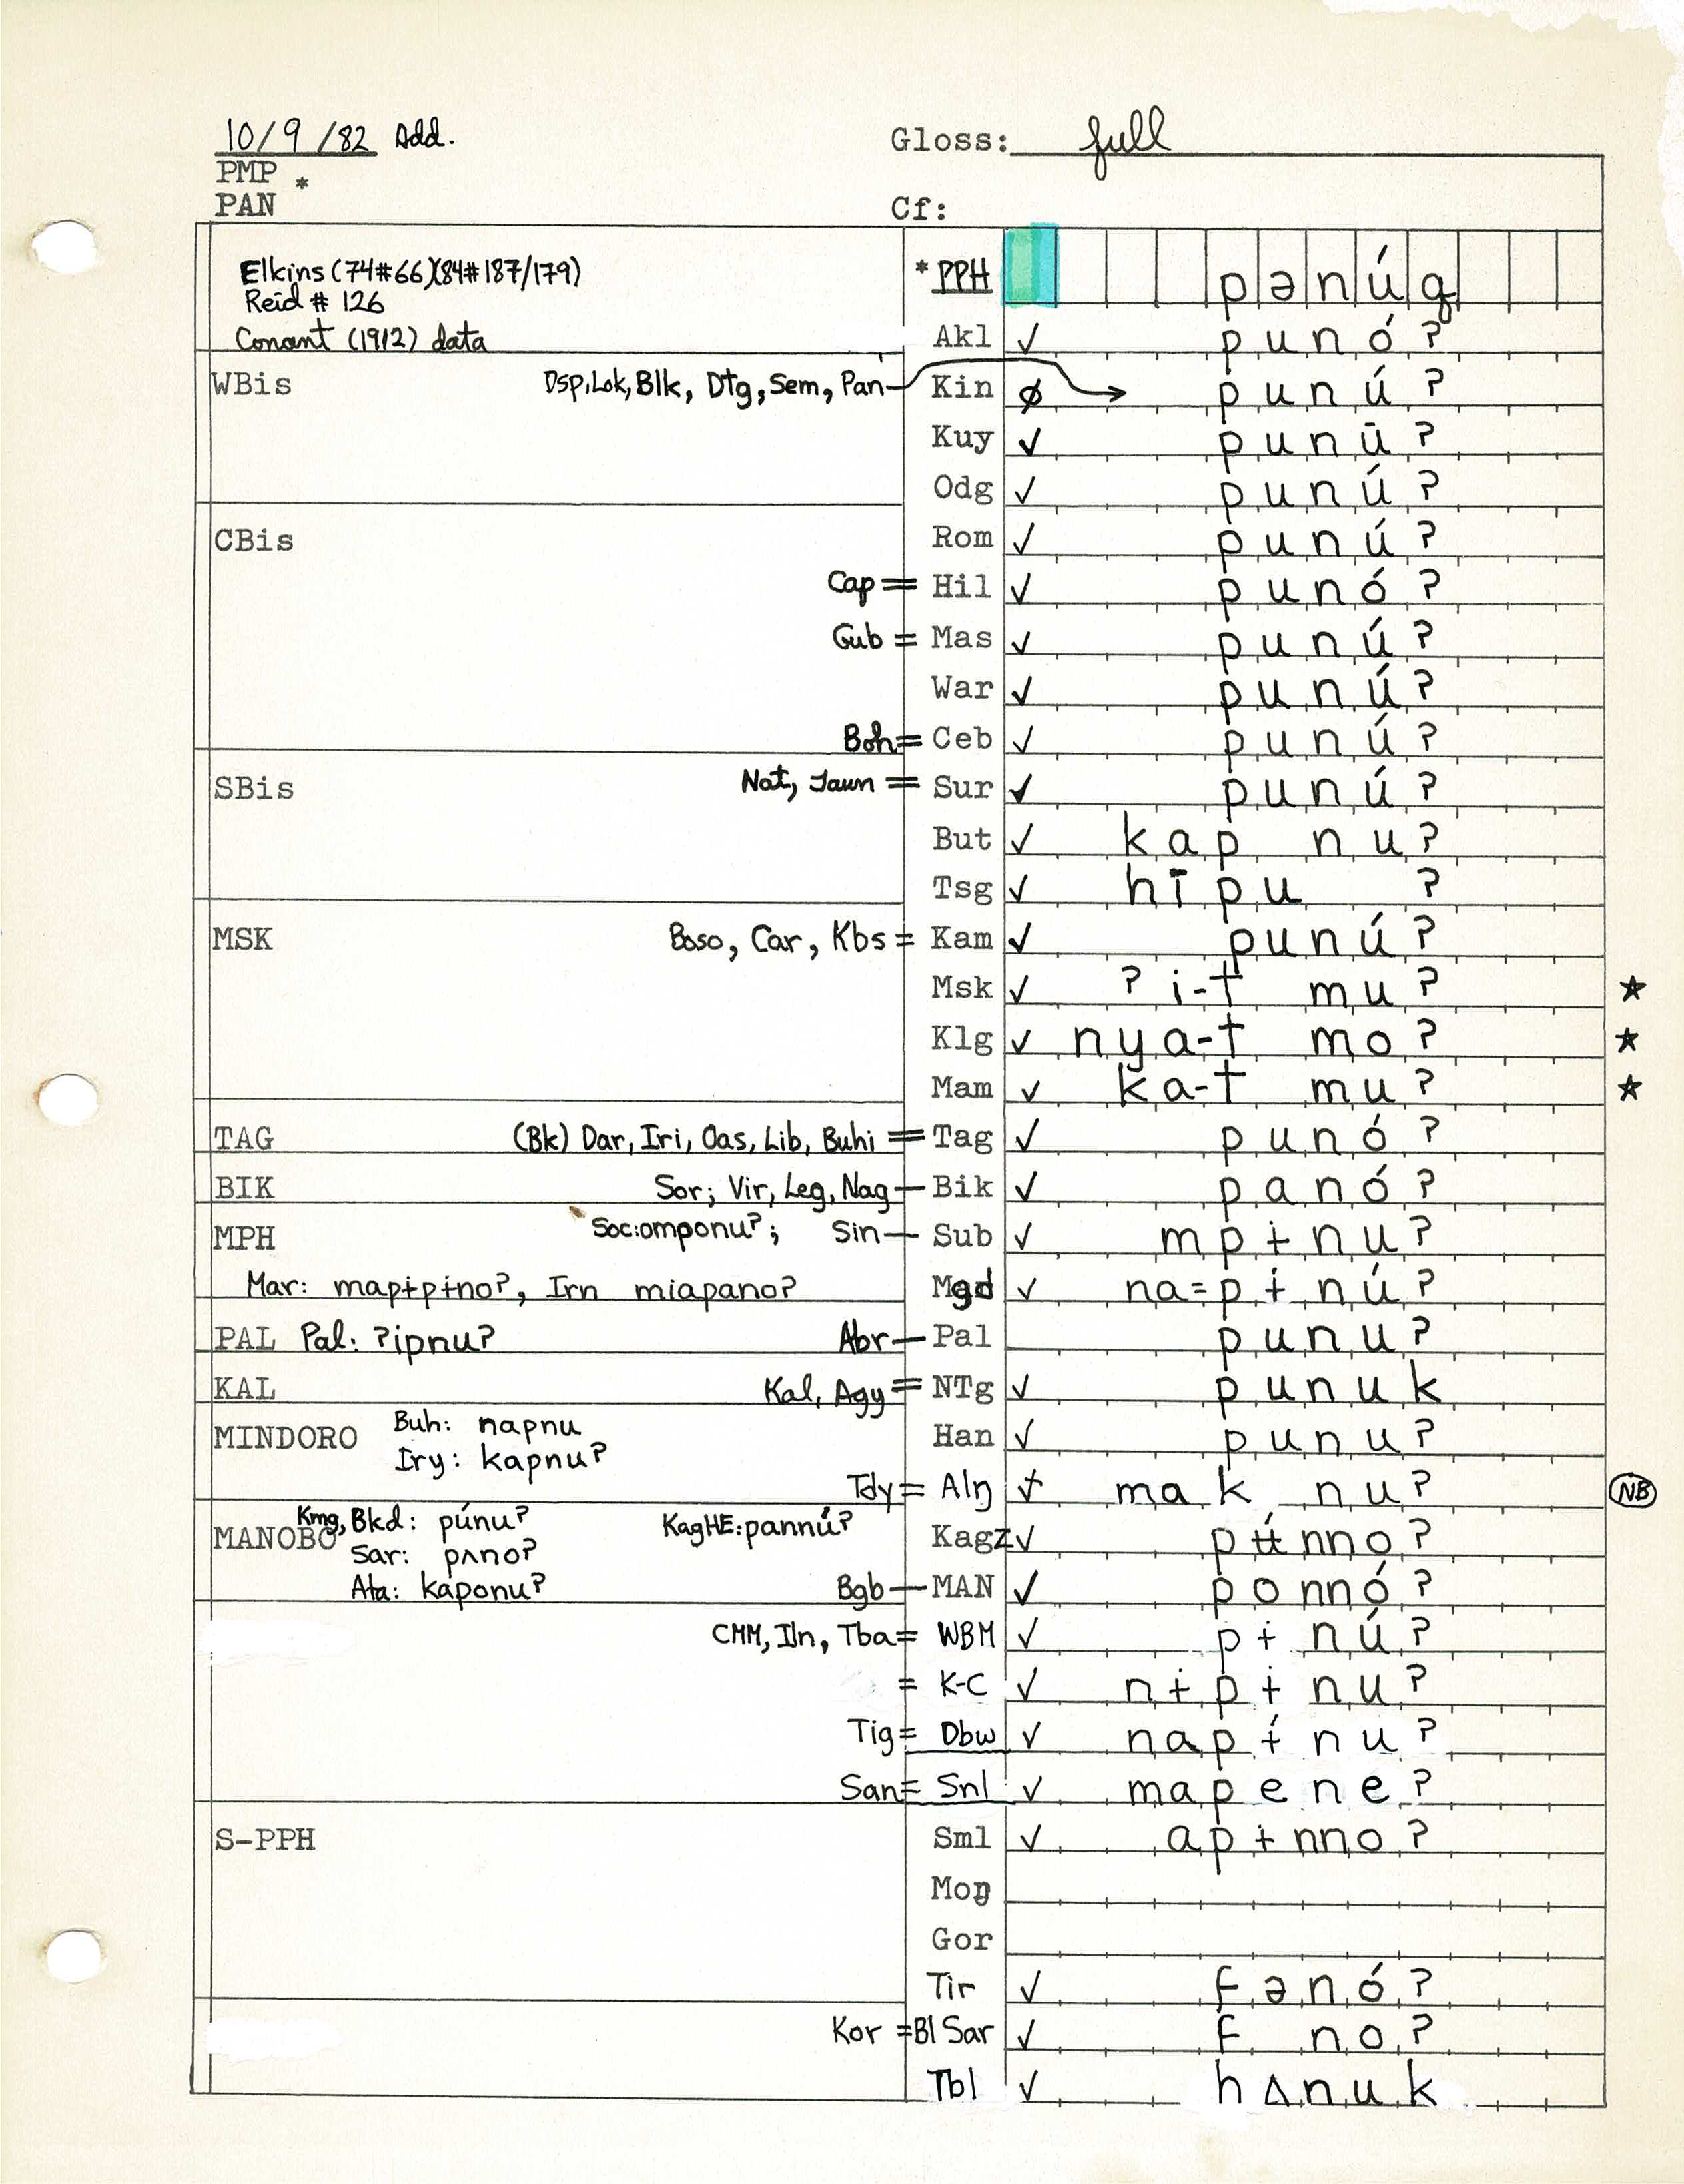 10/9/82 Add. Gloss: full
PMP *
PAN Cf:
Elkins (74#66)(84#187/179) *PPH pənúq
Reid # 126
Conant (1912) data Akl ✓ punó?
WBis Dsp, Lok, Blk, Dtg, Sem, Pan — Kin ∅ → punú?
Kuy ✓ punū?
Odg ✓ punú?
CBis Rom ✓ punú?
Cap = Hil ✓ punó?
Gub = Mas ✓ punú?
War ✓ punú?
Boh = Ceb ✓ punú?
SBis Nat, Jaun = Sur ✓ punú?
But ✓ kap nu?
Tsg ✓ hīpu ?
MSK Boso, Car, Kbs = Kam ✓ punú?
Msk ✓ ?i-t mu? ★
Klg ✓ nya-t mo? ★
Mam ✓ ka-t mu? ★
TAG (Bk) Dar, Iri, Oas, Lib, Buhi = Tag ✓ punó?
BIK Sor; Vir, Leg, Nag — Bik ✓ panó?
MPH Soc:omponu?; Sin — Sub ✓ mpɨnu?
Mar: mapɨpɨno?, Irn miapano? Mgd ✓ na=pɨnú?
PAL Pal: ?ipnu? Abr — Pal punu?
KAL Kal, Agy = NTg ✓ punuk
MINDORO Buh: napnu Han ✓ punu?
Iry: kapnu?
Tdy = Alŋ ✓ mak nu? NB
MANOBO Kmg, Bkd: púnu? KagHE: pannú? Kagz ✓ pʉ́nno?
Sar: pʌno?
Ata: kaponu? Bgb — MAN ✓ ponnó?
CMM, Iln, Tba = WBM ✓ pɨnú?
= K-C ✓ nɨpɨnu?
Tig = Dbw ✓ napɨ́nu?
San = Snl ✓ mapene?
S-PPH Sml ✓ apɨnno?
Moŋ
Gor
Tir ✓ fənó?
Kor = Bl Sar ✓ f no?
Tbl ✓ hʌnuk